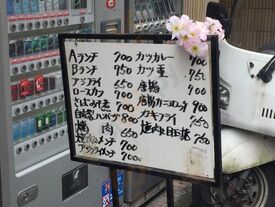 Aランチ 700
Bランチ 750
アジフライ 650
ロースカツ 700
さば みそ煮 700
自家製ハンバーグ 800
焼肉 650
焼肉メンチ 700
アジフライメンチ 700
カツカレー 700
カツ重 750
唐揚 700
唐揚カニコロッケ 700
カキフライ 750
焼肉&目玉焼 750